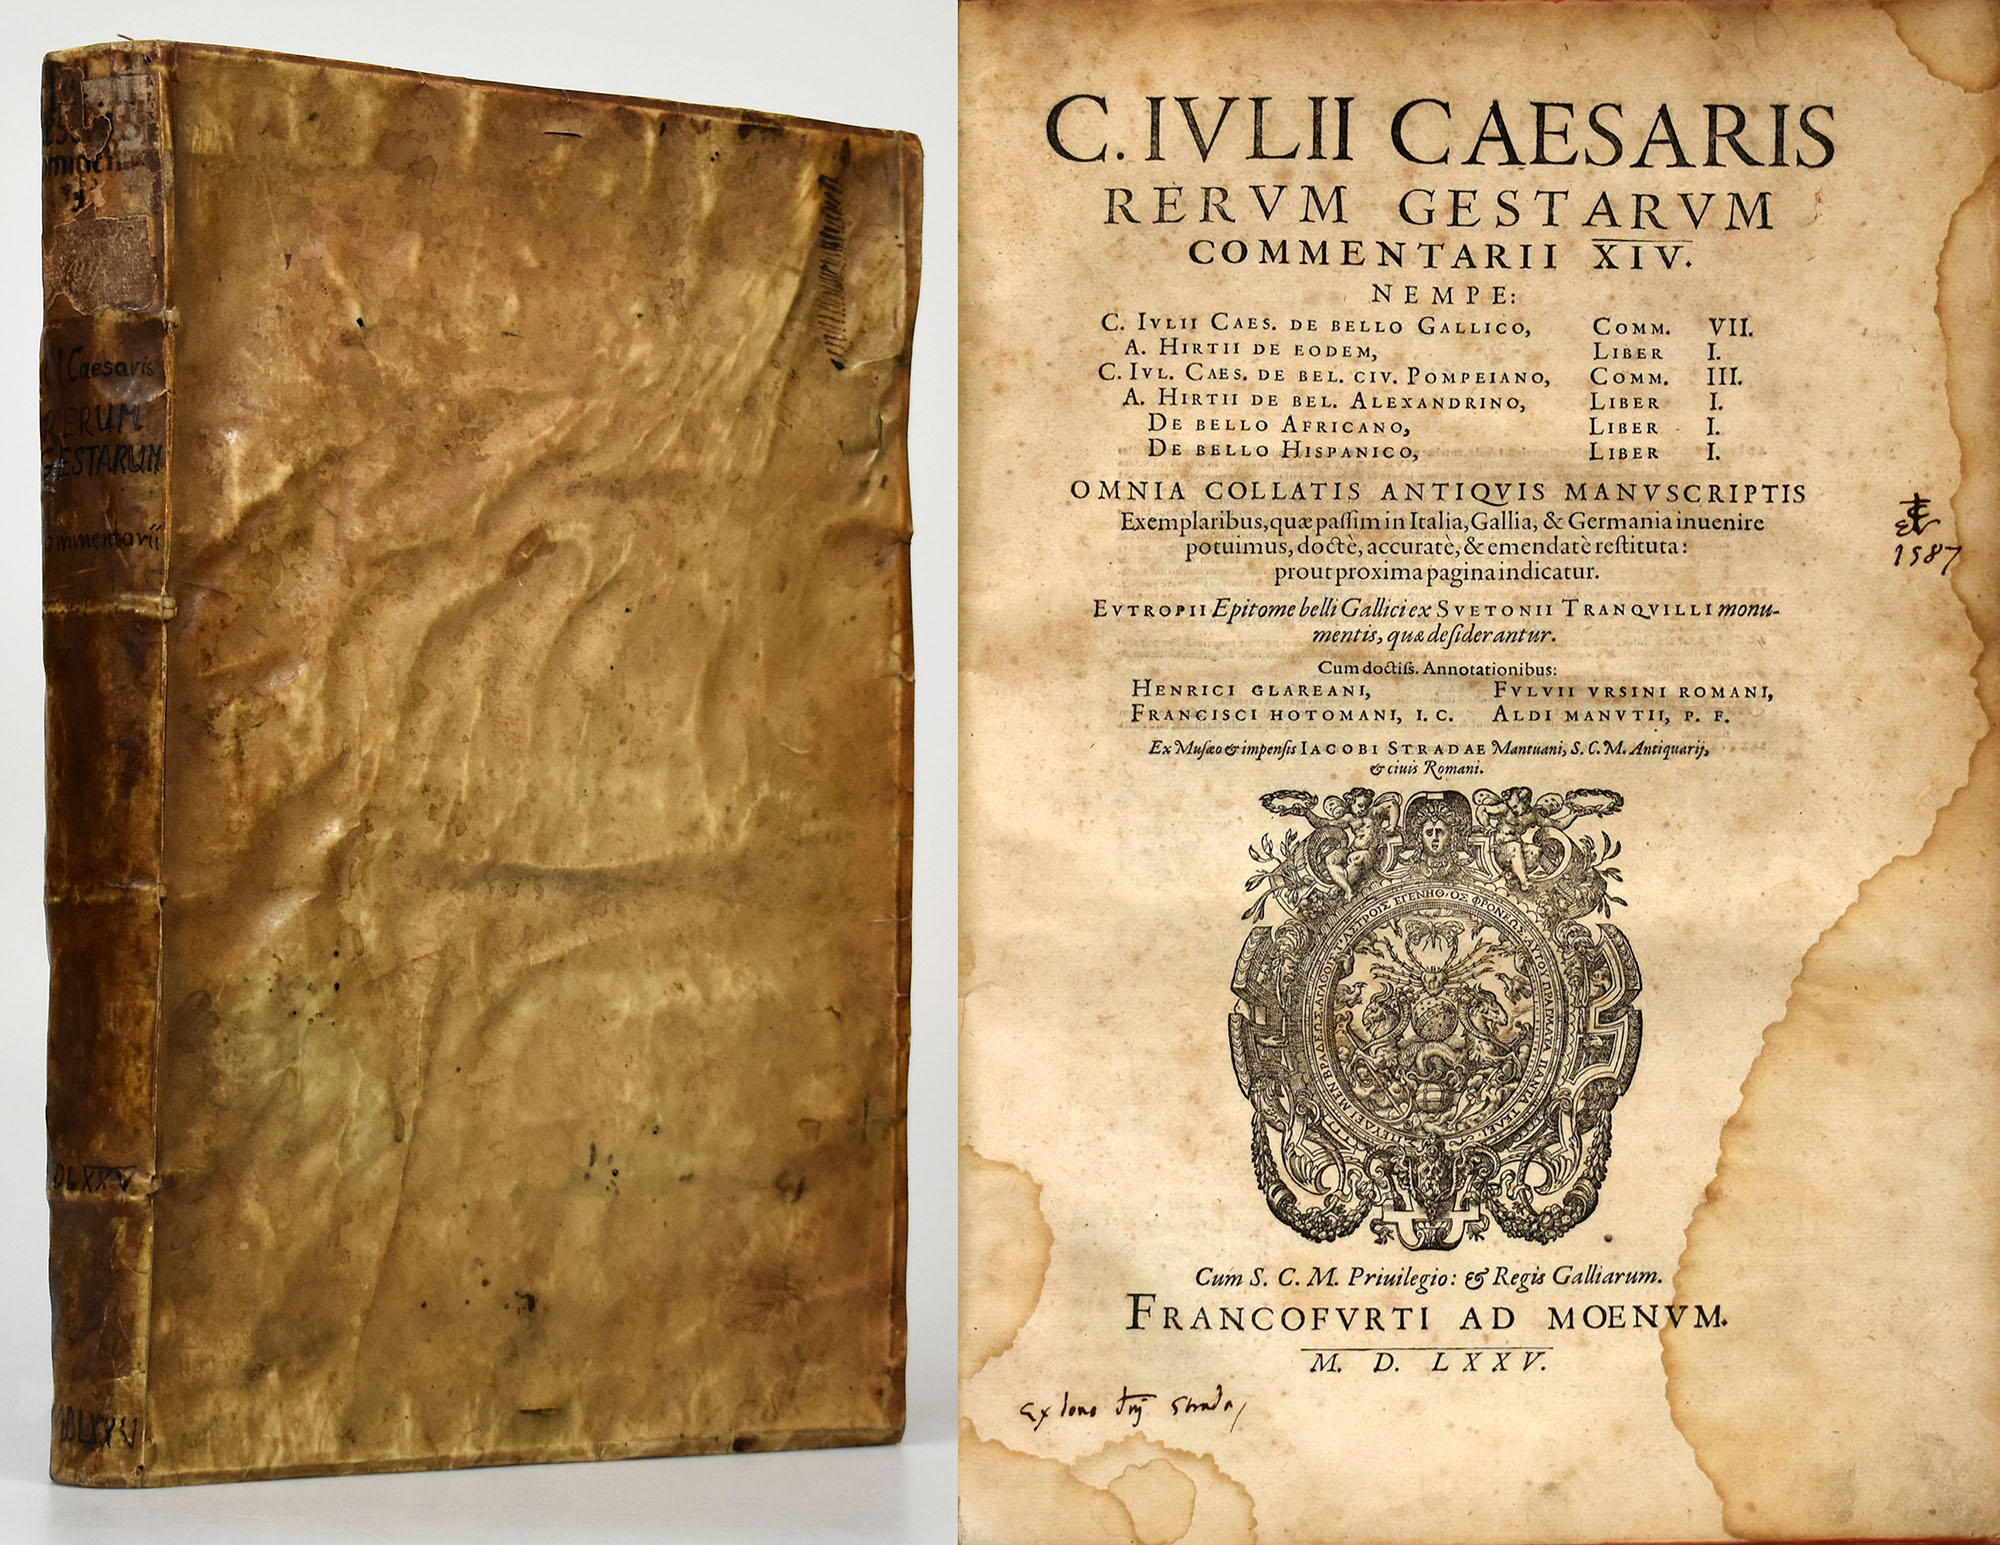 C I Caesaris
RERUM
GESTARUM
ommentarii
DLXXV
MDLXXV
C. IVLII CAESARIS
RERVM GESTARVM
COMMENTARII XIV.
NEMPE:
C. IVLII CAES. DE BELLO GALLICO, COMM. VII.
A. HIRTII DE EODEM, LIBER I.
C. IVL. CAES. DE BEL. CIV. POMPEIANO, COMM. III.
A. HIRTII DE BEL. ALEXANDRINO, LIBER I.
DE BELLO AFRICANO, LIBER I.
DE BELLO HISPANICO, LIBER I.
OMNIA COLLATIS ANTIQVIS MANVSCRIPTIS
Exemplaribus, quæ paſſim in Italia, Gallia, & Germania inuenire
potuimus, doctè, accuratè, & emendatè reſtituta:
prout proxima pagina indicatur.
EVTROPII Epitome belli Gallici ex SVETONII TRANQVILLI monu-
mentis, quæ deſiderantur.
Cum doctiſſ. Annotationibus:
HENRICI GLAREANI, FVLVII VRSINI ROMANI,
FRANCISCI HOTOMANI, I. C. ALDI MANVTII, P. F.
Ex Muſæo & impenſis IACOBI STRADAE Mantuani, S. C. M. Antiquarij,
& ciuis Romani.
1587
Cum S. C. M. Priuilegio: & Regis Galliarum.
FRANCOFVRTI AD MOENVM.
M. D. LXXV.
Ex dono Strada